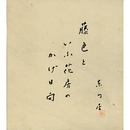 藤色と
いふ花房の
かげ日向